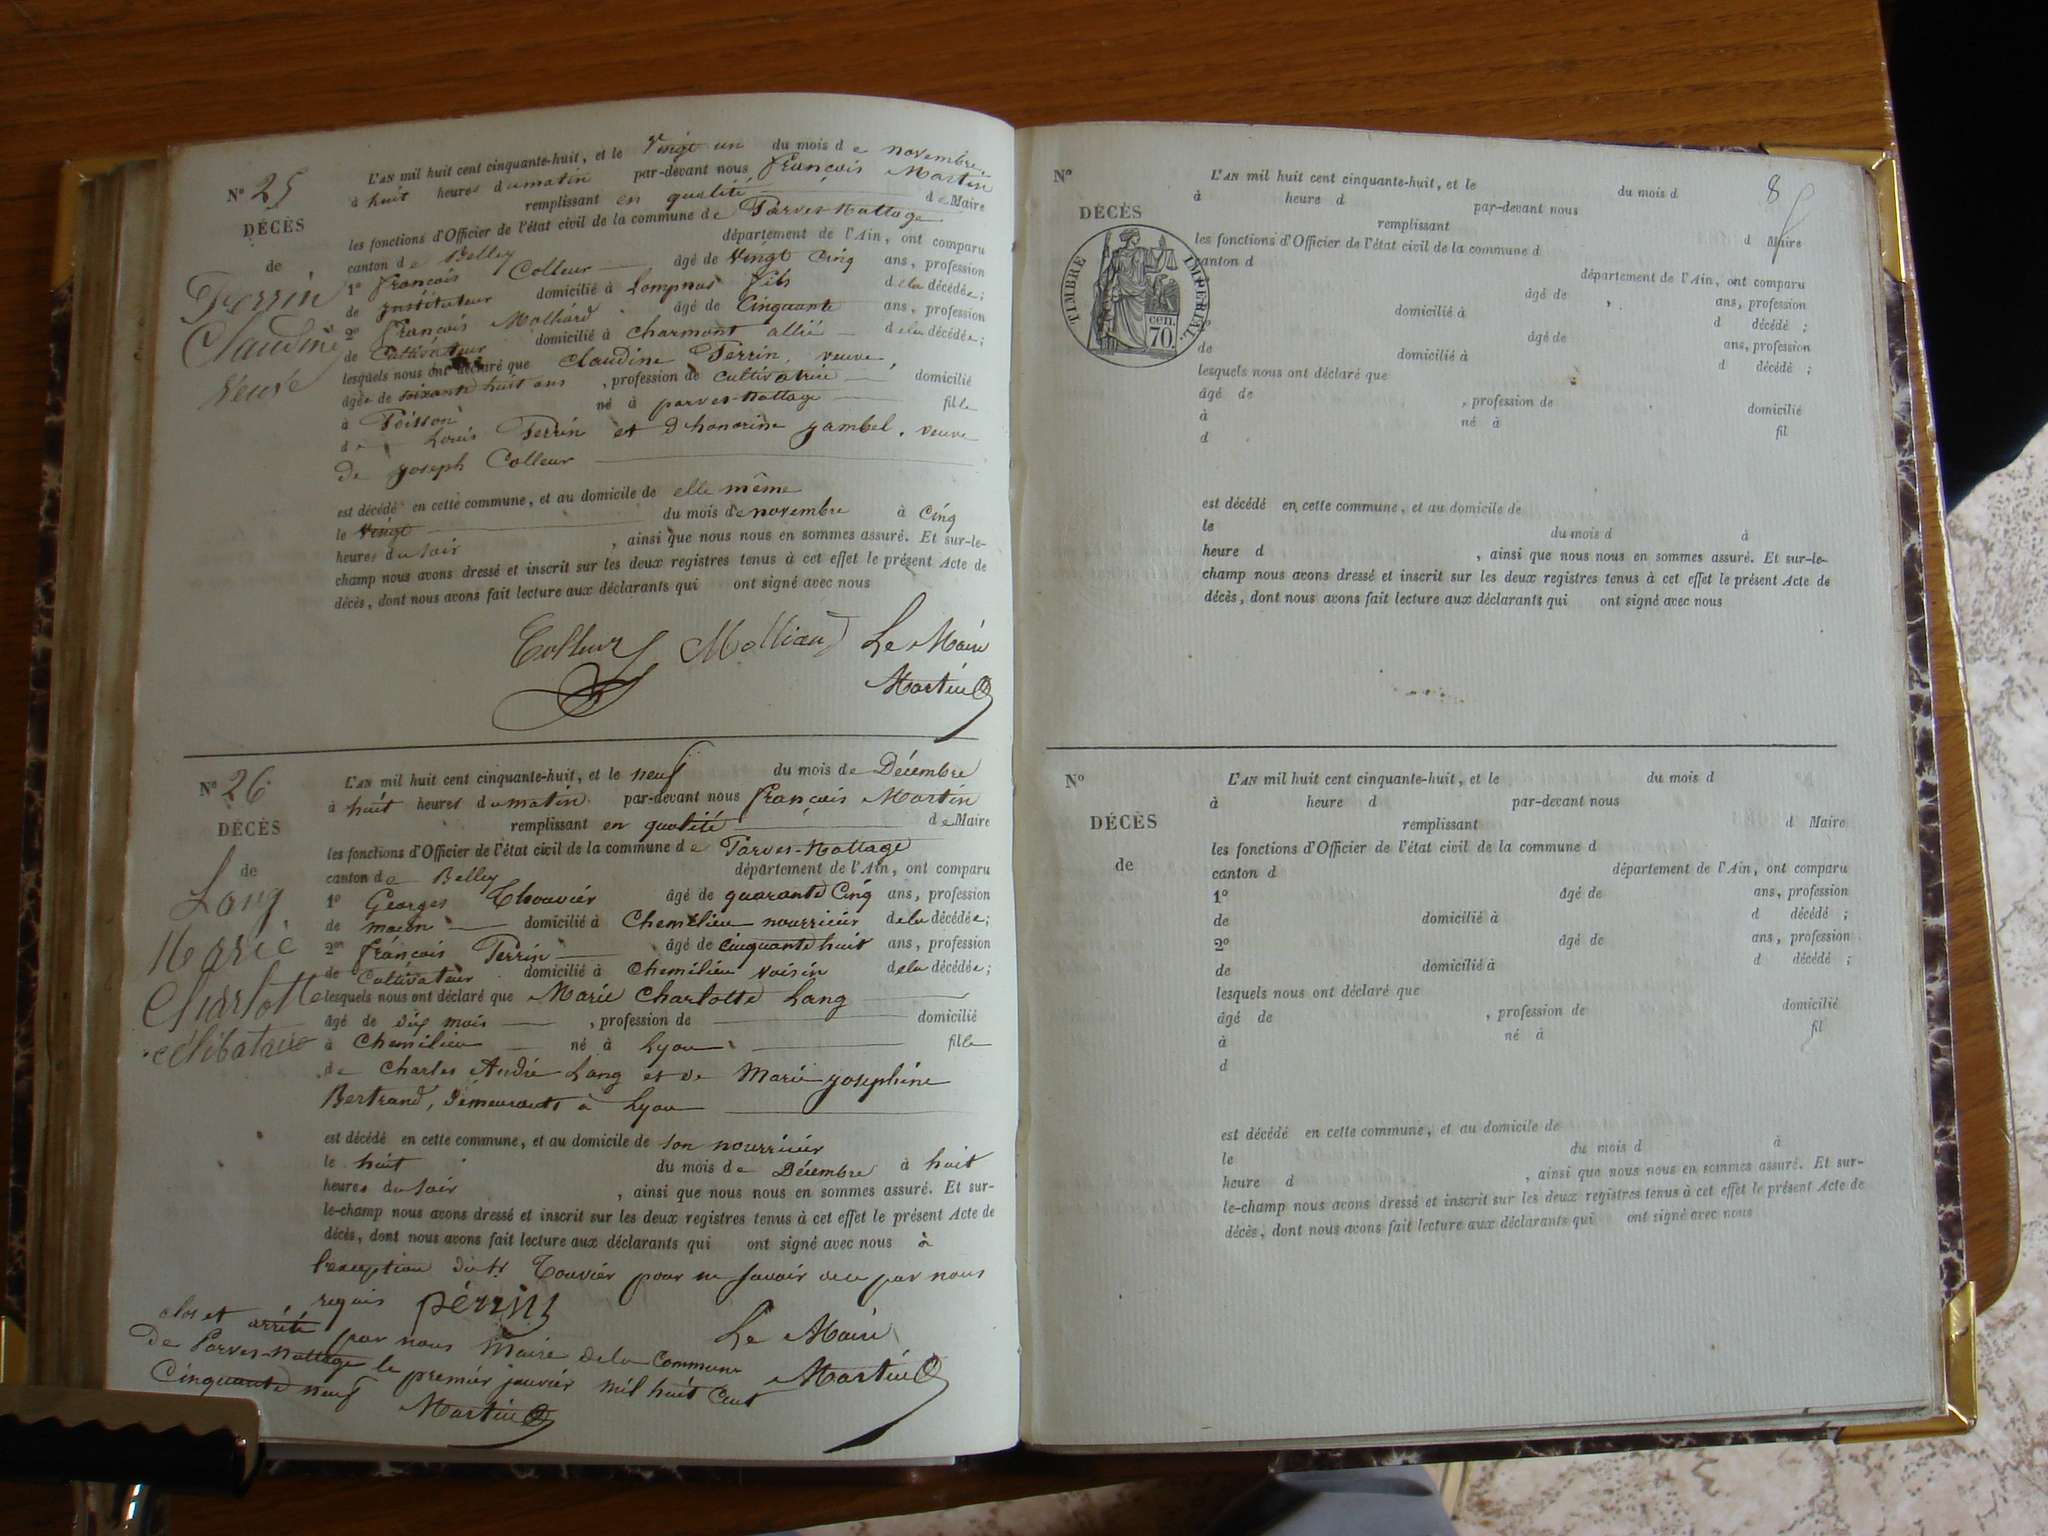 N° 25
DÉCÈS
de
Perrin
Claudine
Veuve
L'AN mil huit cent cinquante-huit, et le vingt un du mois de novembre
à huit heures du matin par-devant nous françois Martin
remplissant en qualité de Maire
les fonctions d'Officier de l'état civil de la commune de Parves-Nattage
canton de Belley département de l'Ain, ont comparu
1° françois Colleur âgé de vingt cinq ans, profession
de instituteur domicilié à Lompnas fils de la décédée;
2° françois Molliard âgé de cinquante ans, profession
de Cultivateur domicilié à Charmont allié de la décédée;
lesquels nous ont déclaré que Claudine Perrin, veuve
âgée de soixante huit ans, profession de cultivatrice domicilié
à Poisson né à parves-Nattage fille
de Louis Perrin et d'honorine gambel, veuve
de joseph Colleur
est décédé en cette commune, et au domicile de elle même
le vingt du mois de novembre à cinq
heures du soir, ainsi que nous nous en sommes assuré. Et sur-le-
champ nous avons dressé et inscrit sur les deux registres tenus à cet effet le présent Acte de
décès, dont nous avons fait lecture aux déclarants qui ont signé avec nous
Colleur Molliard Le Maire
Martin
N° 26
DÉCÈS
de
Lang
Marie
Charlotte
célibataire
L'AN mil huit cent cinquante-huit, et le neuf du mois de Décembre
à huit heures du matin par-devant nous françois Martin
remplissant en qualité de Maire
les fonctions d'Officier de l'état civil de la commune de Parves-Nattage
canton de Belley département de l'Ain, ont comparu
1° Georges Thouvier âgé de quarante cinq ans, profession
de maçon domicilié à Chemilieu nourricier de la décédée;
2° françois Perrin âgé de cinquante huit ans, profession
de Cultivateur domicilié à Chemilieu voisin de la décédée;
lesquels nous ont déclaré que Marie Charlotte Lang
âgé de dix mois, profession de domicilié
à Chemilieu né à Lyon fille
de Charles André Lang et de Marie josephine
Bertrand, demeurants à Lyon
est décédé en cette commune, et au domicile de son nourricier
le huit du mois de Décembre à huit
heures du soir, ainsi que nous nous en sommes assuré. Et sur-
le-champ nous avons dressé et inscrit sur les deux registres tenus à cet effet le présent Acte de
décès, dont nous avons fait lecture aux déclarants qui ont signé avec nous à
l'exception du Sr Touvier pour ne savoir de ce par nous
requis pérrin
Le Maire
Martin
clos et arrêté par nous Maire de la Commune
de Parves-Nattage le premier janvier mil huit Cent
Cinquante neuf
Martin
8
N°
DÉCÈS
TIMBRE IMPÉRIAL
70 cen.
L'AN mil huit cent cinquante-huit, et le du mois d
à heure d par-devant nous
remplissant d Maire
les fonctions d'Officier de l'état civil de la commune d
canton d département de l'Ain, ont comparu
âgé de ans, profession
domicilié à d décédé ;
âgé de ans, profession
de domicilié à d décédé ;
lesquels nous ont déclaré que
âgé de , profession de domicilié
à né à fil
d
est décédé en cette commune, et au domicile de
le du mois d à
heure d , ainsi que nous nous en sommes assuré. Et sur-le-
champ nous avons dressé et inscrit sur les deux registres tenus à cet effet le présent Acte de
décès, dont nous avons fait lecture aux déclarants qui ont signé avec nous
N°
DÉCÈS
de
L'AN mil huit cent cinquante-huit, et le du mois d
à heure d par-devant nous
remplissant d Maire
les fonctions d'Officier de l'état civil de la commune d
canton d département de l'Ain, ont comparu
1° âgé de ans, profession
de domicilié à d décédé ;
2° âgé de ans, profession
de domicilié à d décédé ;
lesquels nous ont déclaré que
âgé de , profession de domicilié
à né à fil
d
est décédé en cette commune, et au domicile de
le du mois d à
heure d , ainsi que nous nous en sommes assuré. Et sur-
le-champ nous avons dressé et inscrit sur les deux registres tenus à cet effet le présent Acte de
décès, dont nous avons fait lecture aux déclarants qui ont signé avec nous